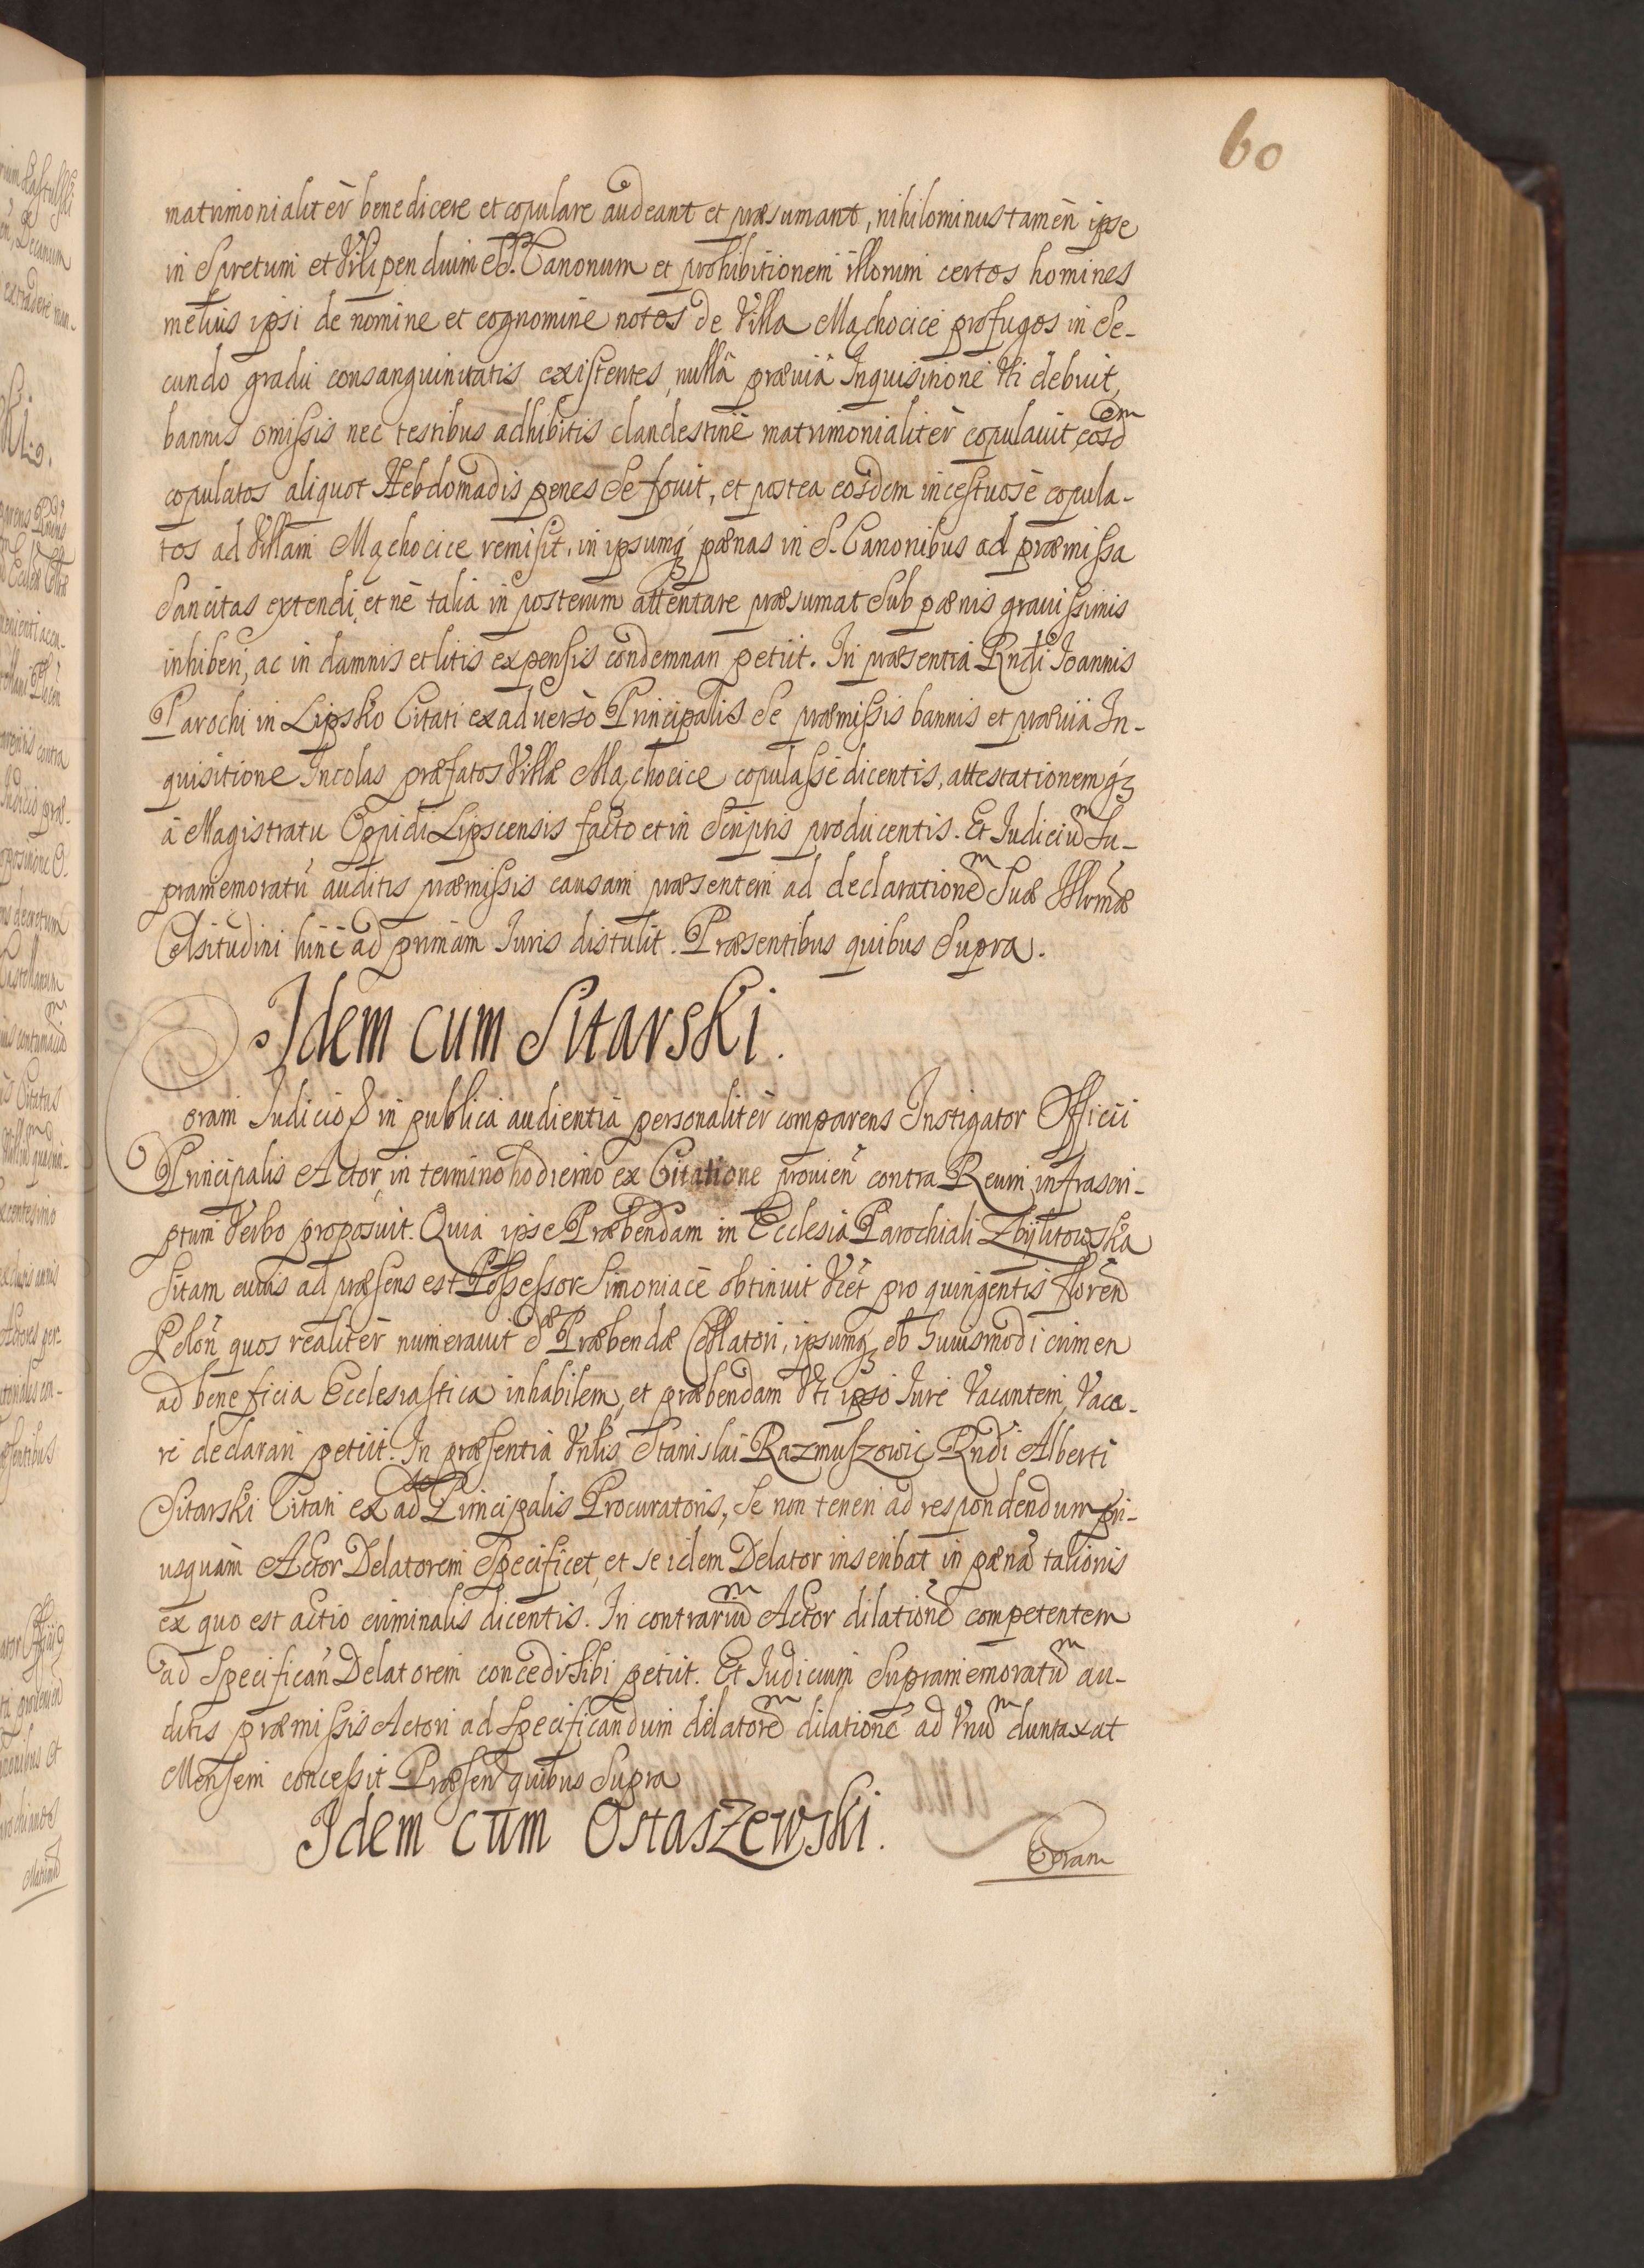 60
matrimonialitèr benedicere et copulare audeant et præsumant, nihilominus tamèn ipse
in Spretum et Vilipendium SS. Canonum et prohibitionem illorum certos homines
meliùs ipsi de nomine et cognomine notos de Villa Mąchocice profugos in Se-
cundo gradu consanguinitatis existentes, nullâ præviâ Inquisitione Vti debuit,
bannis omissis nec testibus adhibitis clandestinè matrimonialitèr copulauit, eosdem
copulatos aliquot Hebdomadis penes Se fouit, et postea eosdem incestuosè copula-
tos ad Villam Mąchocice remisit, in ipsumq́ pænas in S. Canonibus ad præmissa
Sancitas extendi, et nè talia in posterum attentare præsumat Sub pænis grauissimis
inhiberi, ac in damnis et litis expensis condemnari petiit. In præsentia Rndi Joannis
Parochi in Lipsko Citati ex aduerso Principalis Se præmissis bannis et præuia In-
quisitione Incolas præfatos Villæ Mąchocice copulasse dicentis, attestationemq́
à Magistratu Oppidi Lipscensis facto et in Scriptis producentis. Et Judicium Su-
pramemoratũ auditis præmissis causam præsentem ad declarationem Suæ Illrmæ
Celsitudini hinc ad primam Juris distulit. Præsentibus quibus Supra.
Idem cum Sitarski.
Coram Judicio & in publica audientia personalitèr comparens Instigator Officii
Principalis Actor, in termino hodierno ex Citatione prouień contra Reum infrascri-
ptum Verbo proposuit. Quia ipse Præbendam in Ecclesia Parochiali Zbylitowska
Sitam cuius ad præsens est Possessor Simoniacè obtinuit Vcet pro quingentis floreń
Poloń quos realitèr numerauit dæ Præbendæ Collatori, ipsumq́ ob huiusmodi crimen
ad beneficia Ecclesiastica inhabilem, et præbendam Vti ipso Jure Vacantem, Vaca-
re declarari petiit. In præsentia Vnlis Stanislai Razmuszowic Rndi Alberti
Sitarski Citati ex ad Principalis Procuratoris, Se non teneri ad respondendum pri-
usquàm Actor Delatorem Specificet, et se idem Delator inscribat in pænã talionis
ex quo est actio criminalis dicentis. In contrarium Actor dilationẽ competentem
ad Specificań Delatorem concedi Sibi petiit. Et Judicium Supramemoratum au-
ditis præmissis Actori ad Specificandum delatorem dilationẽ ad Vnum duntaxat
Mensem concessit Præseń quibus Supra
Idem cum Ostaszewski.
Coram